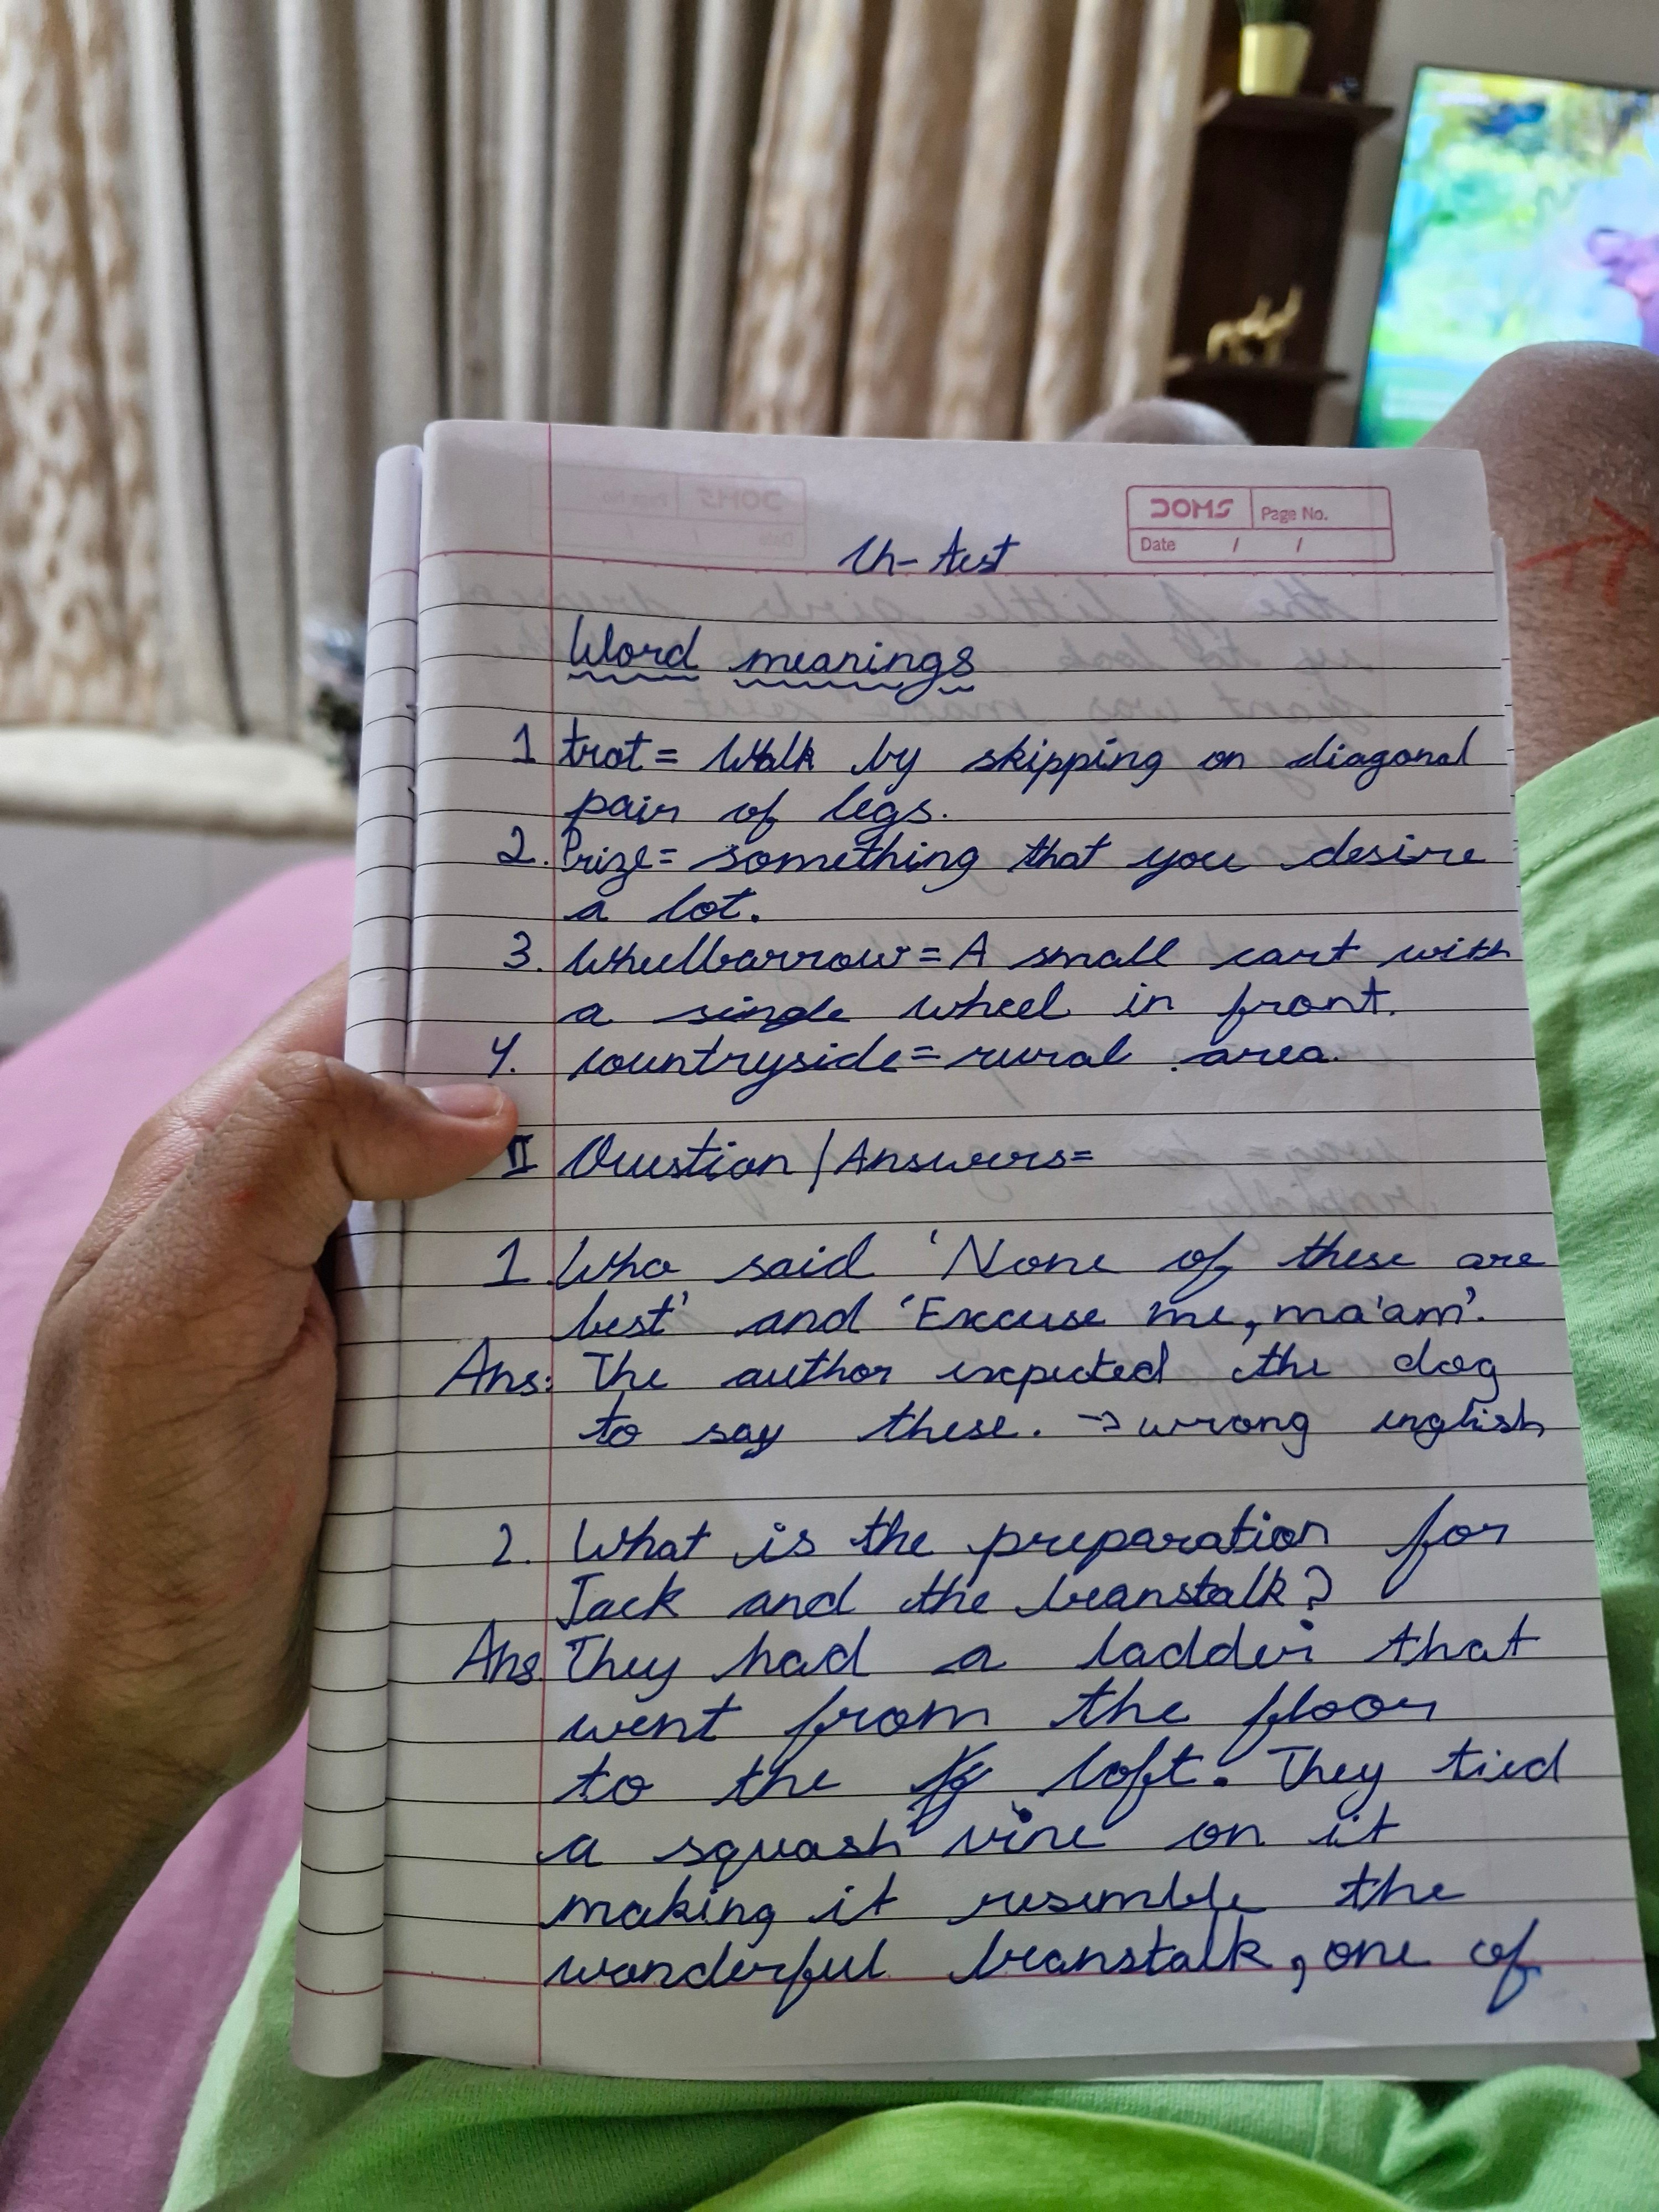 DOMS Page No.
Date / /
Ch-test
Word meanings
1 trot = Walk by skipping on diagonal
pair of legs.
2. Prize = something that you desire
a lot.
3. Wheelbarrow = A small cart with
a single wheel in front.
4. countryside = rural area.
II Question / Answers=
1 Who said 'None of these are
best' and 'Excuse me, ma'am'.
Ans: The author expected the dog
to say these. → wrong english
2. What is the preparation for
Jack and the beanstalk?
Ans. They had a ladder that
went from the floor
to the loft. They tied
a squash vine on it
making it resemble the
wonderful beanstalk, one of